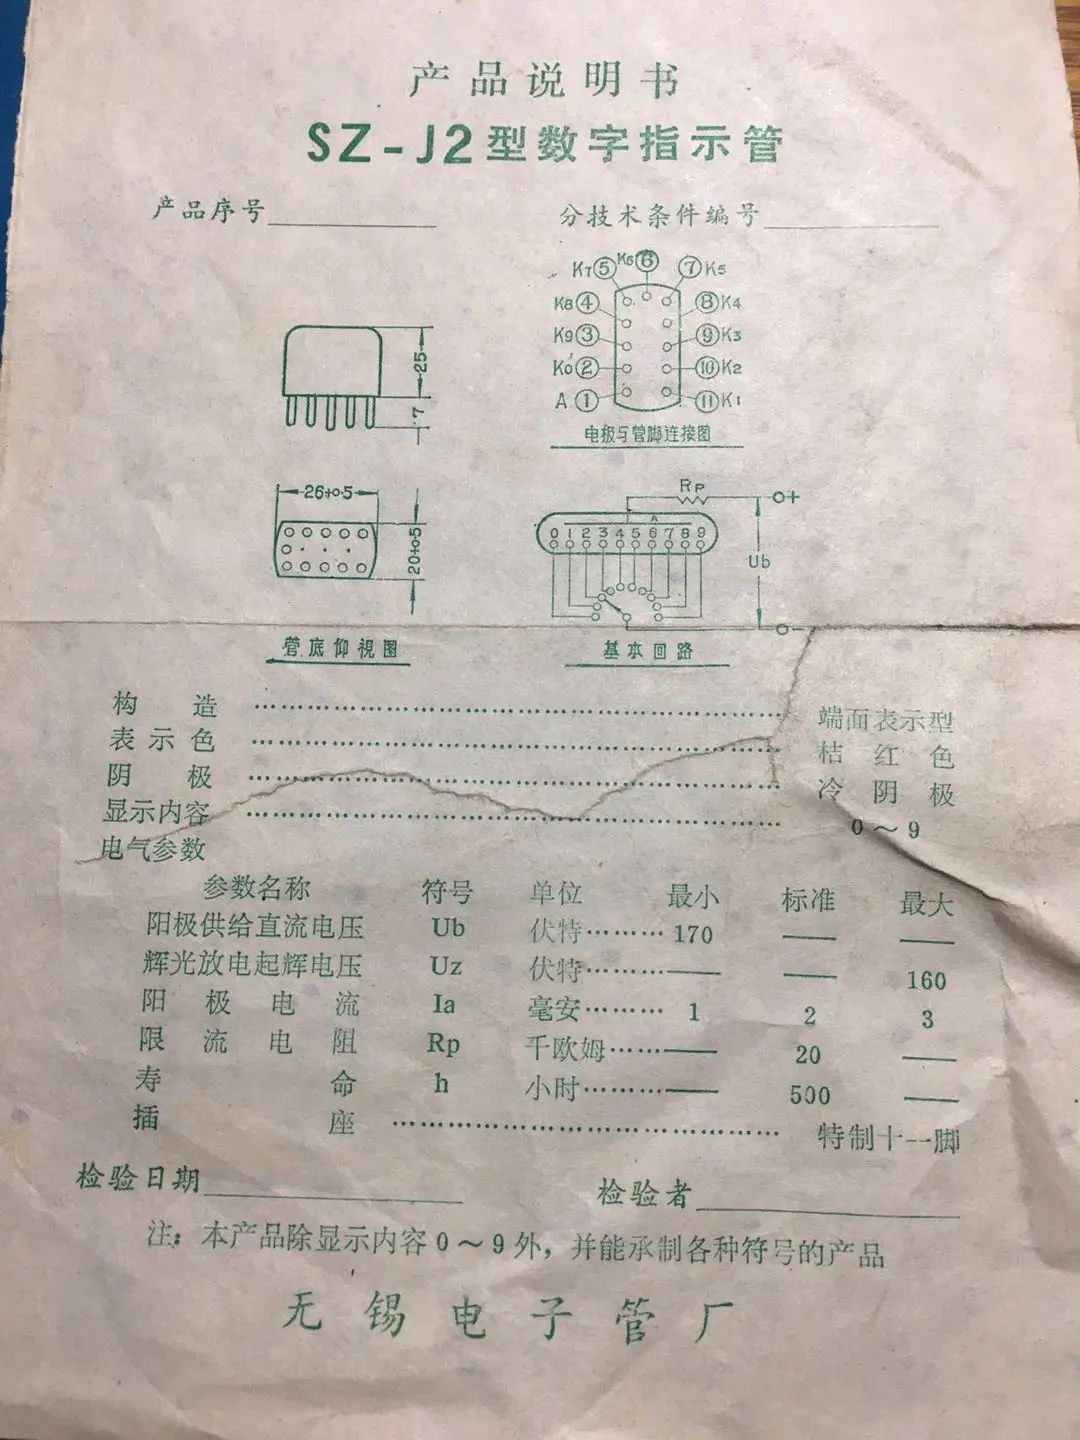 产品说明书
SZ-J2型数字指示管
产品序号 分技术条件编号
K7⑤ K6⑥ ⑦K5
K8④ ⑧K4
K9③ ⑨K3
K0② ⑩K2
A① ⑪K1
电极与管脚连接图
25
7
26+0.5
20+0.5
管底仰视图
Rp
+
A
0 1 2 3 4 5 6 7 8 9
Ub
-
基本回路
构造 端面表示型
表示色 桔红色
阴极 冷阴极
显示内容 0～9
电气参数
参数名称 符号 单位 最小 标准 最大
阳极供给直流电压 Ub 伏特……… 170 —— ——
辉光放电起辉电压 Uz 伏特……… —— —— 160
阳极电流 Ia 毫安……… 1 2 3
限流电阻 Rp 千欧姆…… —— 20 ——
寿命 h 小时……… —— 500 ——
插座 特制十一脚
检验日期 检验者
注：本产品除显示内容0～9外，并能承制各种符号的产品
无锡电子管厂